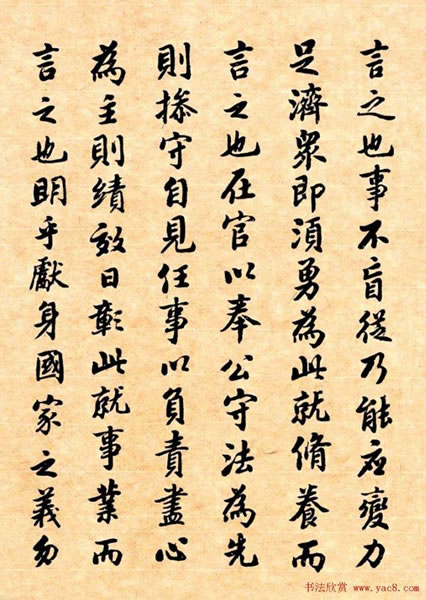 言之也事不盲從乃能应變力
足濟衆即須勇為此就脩養而
言之也在官以奉公守法為先
則操守自見任事以負責盡心
為主則績效日彰此就事業而
言之也明乎獻身國家之義勿
书法欣赏 www.yac8.com